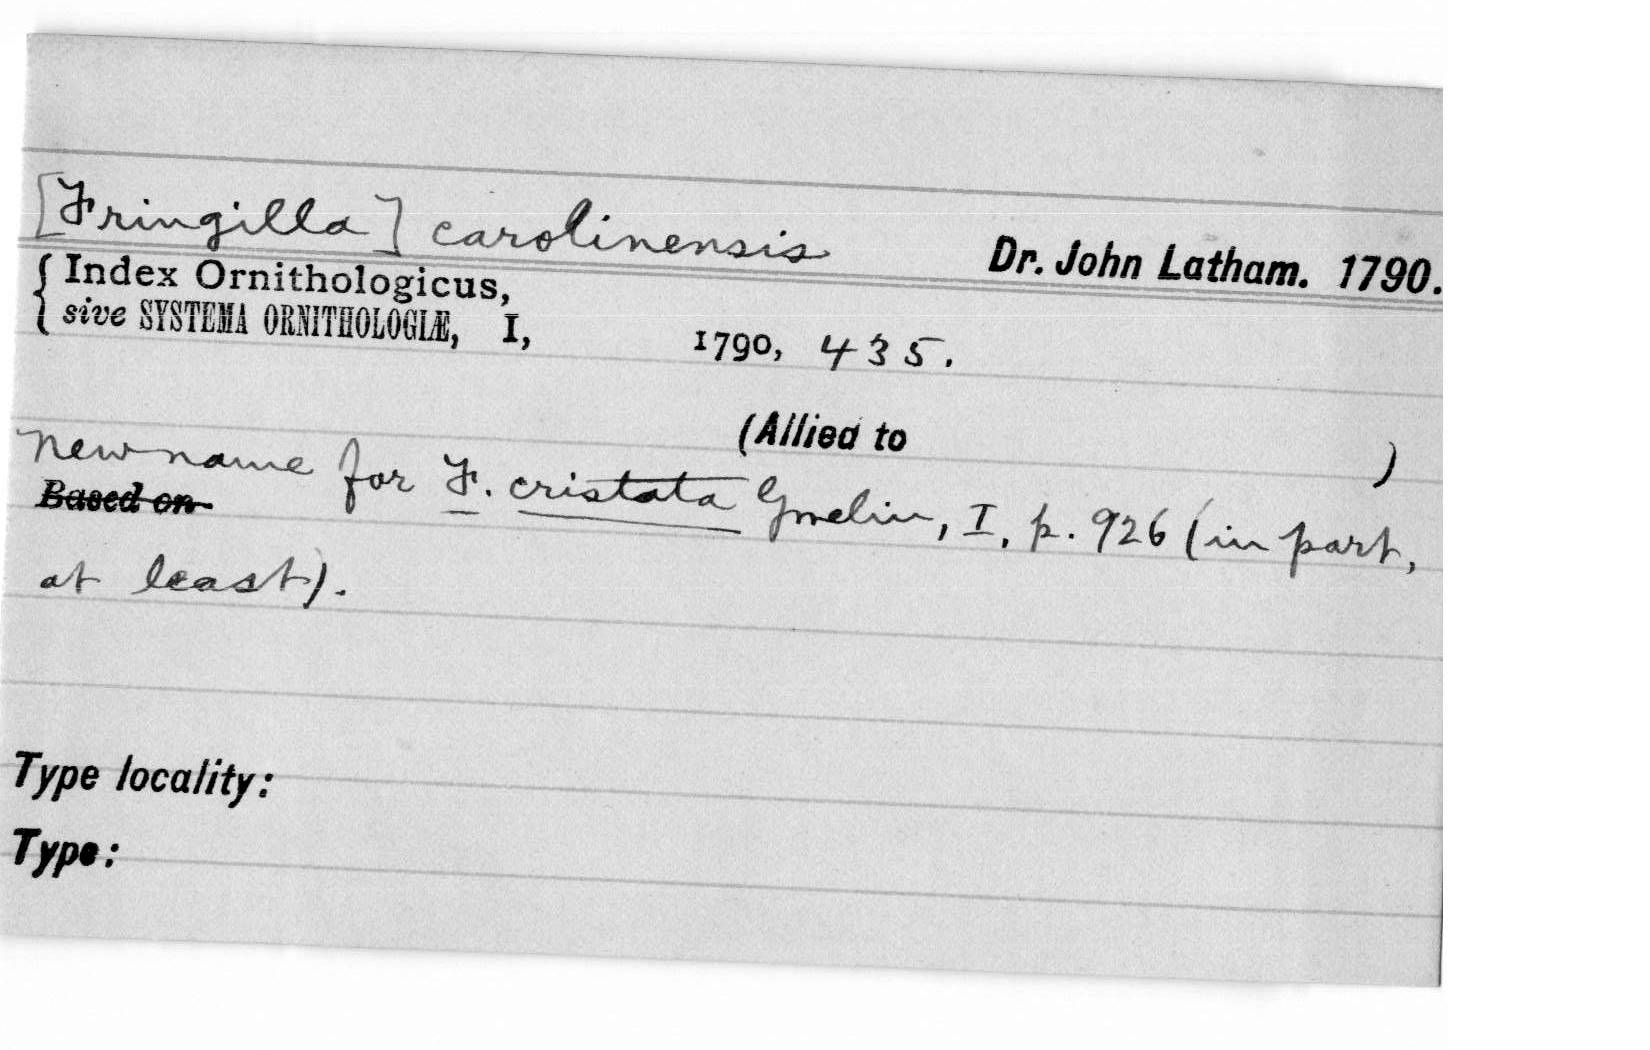 [Fringilla] carolinensis Dr. John Latham. 1790.
Index Ornithologicus,
sive SYSTEMA ORNITHOLOGIÆ, I, 1790, 435.
(Allied to )
New name for F. cristata Gmelin, I, p. 926 (in part,
Based on
at least).
Type locality:
Type: